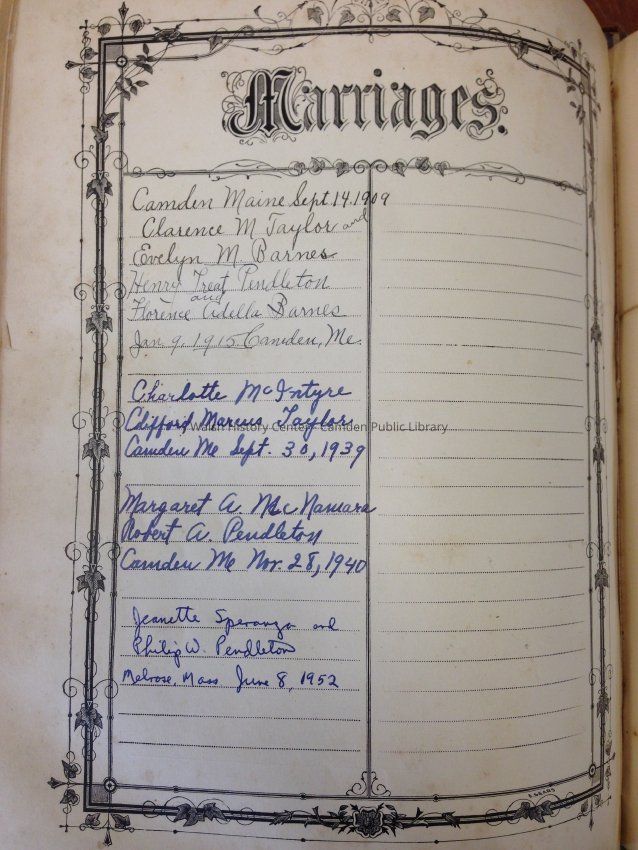 Marriages.
Camden Maine Sept 14. 1909
Clarence M Taylor and
Evelyn M. Barnes
Henry Treat Pendleton
and
Florence Adella Barnes
Jan 9, 1915 Camden, Me.
Charlotte McIntyre
Clifford Marcus Taylor
Walsh History Center - Camden Public Library
Camden Me Sept. 30, 1939
Margaret A. McNamara
Robert A. Pendleton
Camden Me Nov. 28, 1940
Jeanette Speranza and
Philip W. Pendleton
Melrose, Mass June 8, 1952